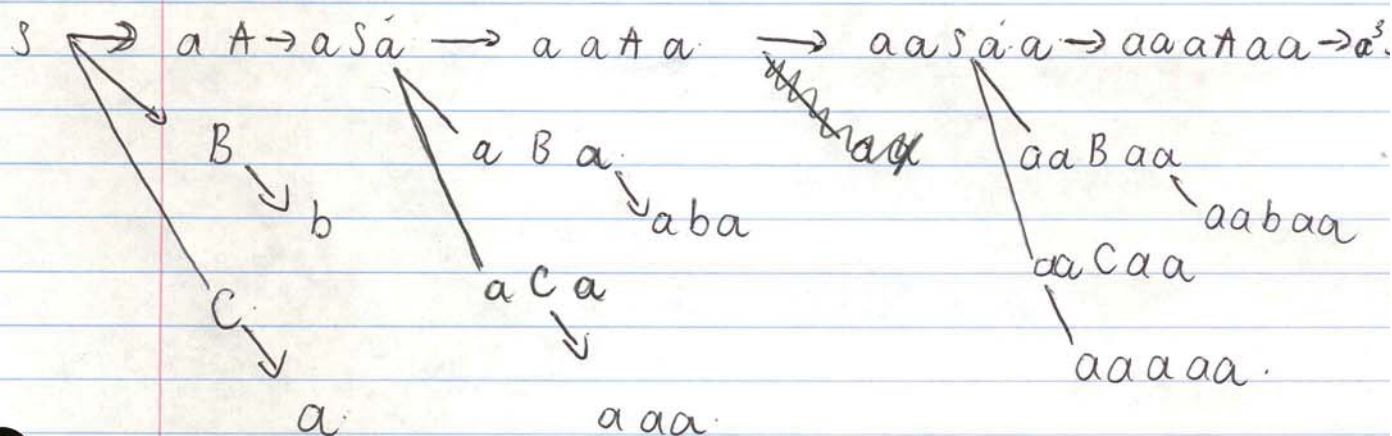 S → aA → aSa → aaAa → aaSaa → aaaAaa → a³
B aBa aaBaa
b aba aabaa
C aCa aaCaa
aaaaa
a aaa